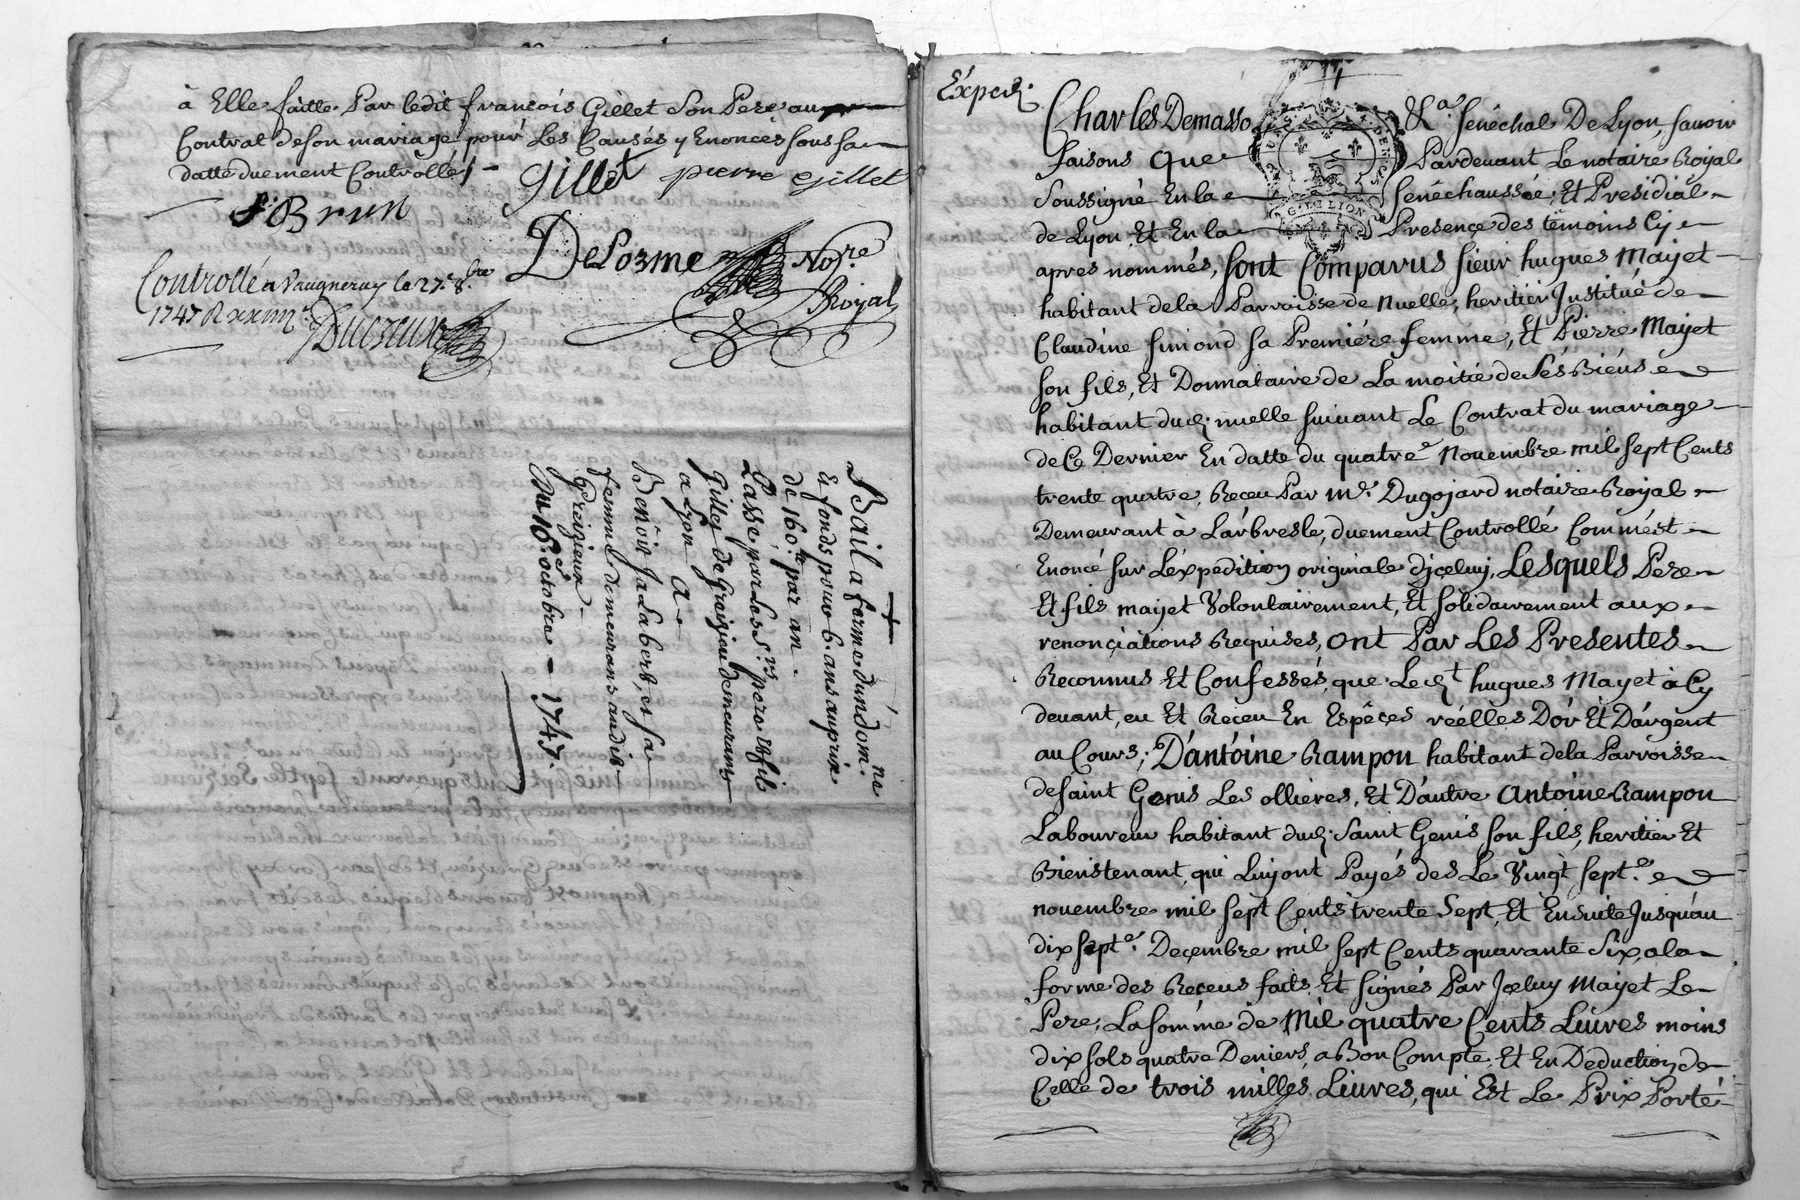 à Elle faitte Par ledit françois Gillet Son Pere au
Contrat de son mariage pour Les Causés y Enoncés sous sa
datte duement Controllés
Gillet pierre gillet
Brun
DeLorme No.re
Royal
Controllé a Vaugneray le 27.e 8.bre
1747
Bail a ferme dun dom.ne
et fonds pour 6. ans au prix
de 160.# par an.
Passé par les S.rs pere et fils
Gillet de Greizieu demeurans
a Lyon
A
Benoit Jalabert, et sa
femme demeurans audit
Greizieux
Du 16.e octobre 1747.
Expedi.
Charles Demasso &.a Senéchal De Lyon, sauoir
faisons que Pardeuant Le notaire Royal
Soussigné En la Senéchaussée, Et Presidial
de Lyon, Et En la Presençe des témoins Cy
apres nommés, sont Comparus sieur hugues Mayet
habitant de la Parroisse de nuelle, heritier Institué de
Claudine simond sa Premiére femme, Et Pierre Mayet
son fils, Et Donnataire de La moitié de Sés Biéns
habitant dud. nuelle suiuant Le Contrat du mariage
de Ce Dernier En datte du quatre Nouembre mil sept Cents
trente quatre, Receu Par M.e Dugojard notaire Royal
Demeurant à Lárbresle, duement Controllé Comm'ést
Enoncé sur L'éxpedition originale d'jçeluy, Lesquels Pere
Et fils mayet Volontairement, Et solidairement aux
renonçiations Requises, ont Par Les Presentes
Reconnus Et Confessés, que Led.t hugues Mayet à Cy
deuant, eu Et Receu En Espéçes réélles D'ór Et D'árgent
au Cours, D'ántoine Rampon habitant de la Parroisse
de Saint Genis Les ollieres, Et D'autre Antoine Rampon
Laboureur habitant dud. Saint Genis son fils, heritier Et
Bienstenant, qui Luy ont Payés des Le Vingt sept.e
nouembre mil sept Cents trente Sept, Et Ensuite Jusqu'au
dix sept.e Deçembre mil sept Cents quarante Six, a la
forme des Reçeus faits, Et signés Par Jçeluy Mayet Le
Pere, La Somme de Mil quatre Cents Liures moins
dix sols quatre Deniers, a Bon Compte, Et En Deduction de
Celle de trois milles Liures, qui Est Le Prix Porté
G. DE LION